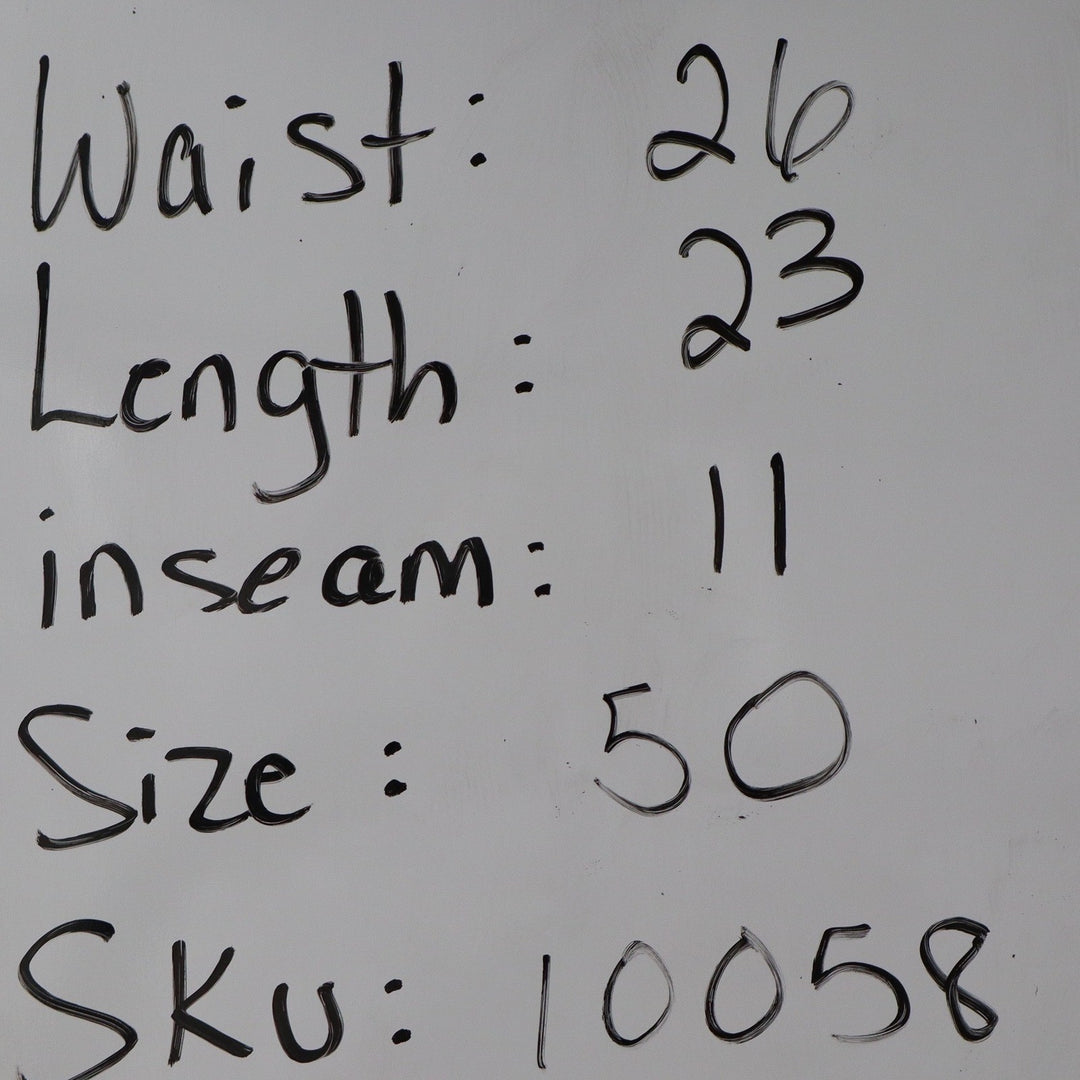 Waist: 26
Length: 23
inseam: 11
Size: 50
SKU: 10058